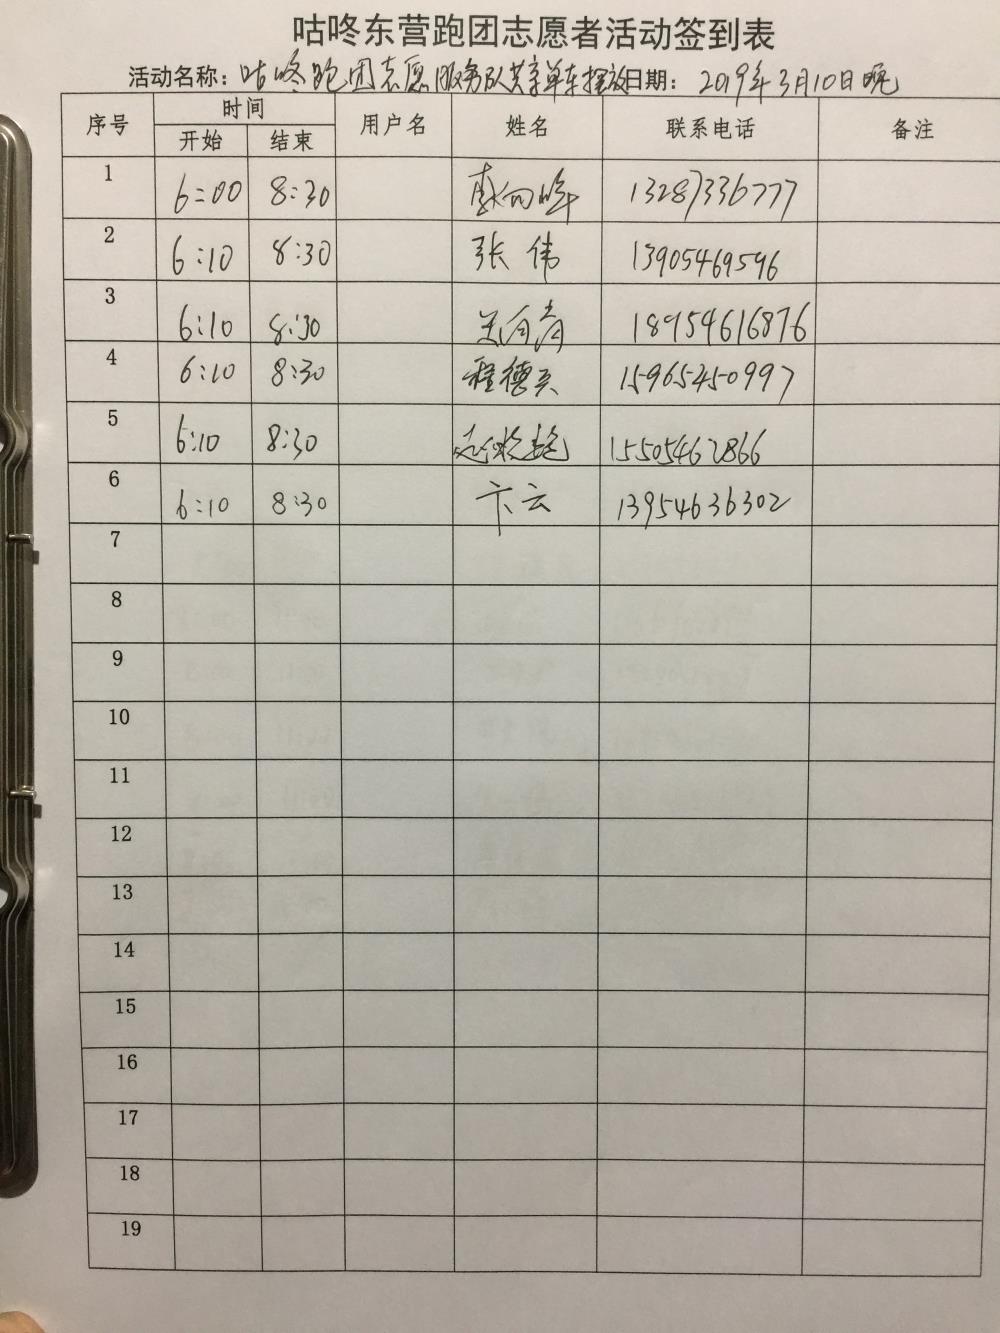 咕咚东营跑团志愿者活动签到表
活动名称：咕咚跑团志愿服务队共享单车摆放 日期：2019年3月10日晚
序号 时间 用户名 姓名 联系电话 备注
开始 结束
1 6:00 8:30 13287336777
2 6:10 8:30 张伟 13905469596
3 6:10 8:30 18954616876
4 6:10 8:30 程德兵 15965450997
5 6:10 8:30 15505462866
6 6:10 8:30 卞云 13954636302
7
8
9
10
11
12
13
14
15
16
17
18
19